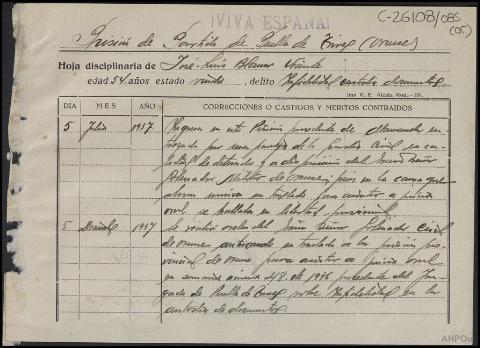 ¡VIVA ESPAÑA!
C-26108/085
(05)
Prisión de Partido de Puebla de Trives (Orense)
Hoja disciplinaria de José-Luis Blanco
edad 54 años estado viudo, delito Infidelidad custodia documentos.
Imp. P. E. Alcalá Mod.
DIA MES AÑO CORRECCIONES O CASTIGOS Y MERITOS CONTRAIDOS
5 Julio 1937 Ingresa en esta Prisión procedente de en-
tregado por una pareja de la Guardia Civil en ca-
lidad de detenido y a disposición del
Militar de Orense; pues en la causa que
en traslado para asistir a juicio
oral se hallaba en libertad provisional.
5 1937 Se recibió orden del Señor Gobernador Civil
de Orense autorizando su traslado a la prisión pro-
vincial de Orense para asistir a juicio oral
en sumario número 48 de 1936 procedente del Juz-
gado de Puebla de Trives sobre Infidelidad en la
custodia de documentos
AHPOu